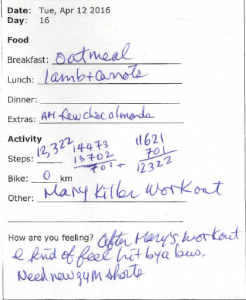 Date: Tue, Apr 12 2016
Day: 16
Food
Breakfast: oatmeal
Lunch: lamb + carrots
Dinner:
Extras: AM few choc almonds
Activity
12,322 14473 11621
Steps: 13702 701
701 + 12322
Bike: 0 km
Other: Mary Killer Workout
How are you feeling? After Mary's workout
I kind of feel hit by a bus.
Need new gym shorts